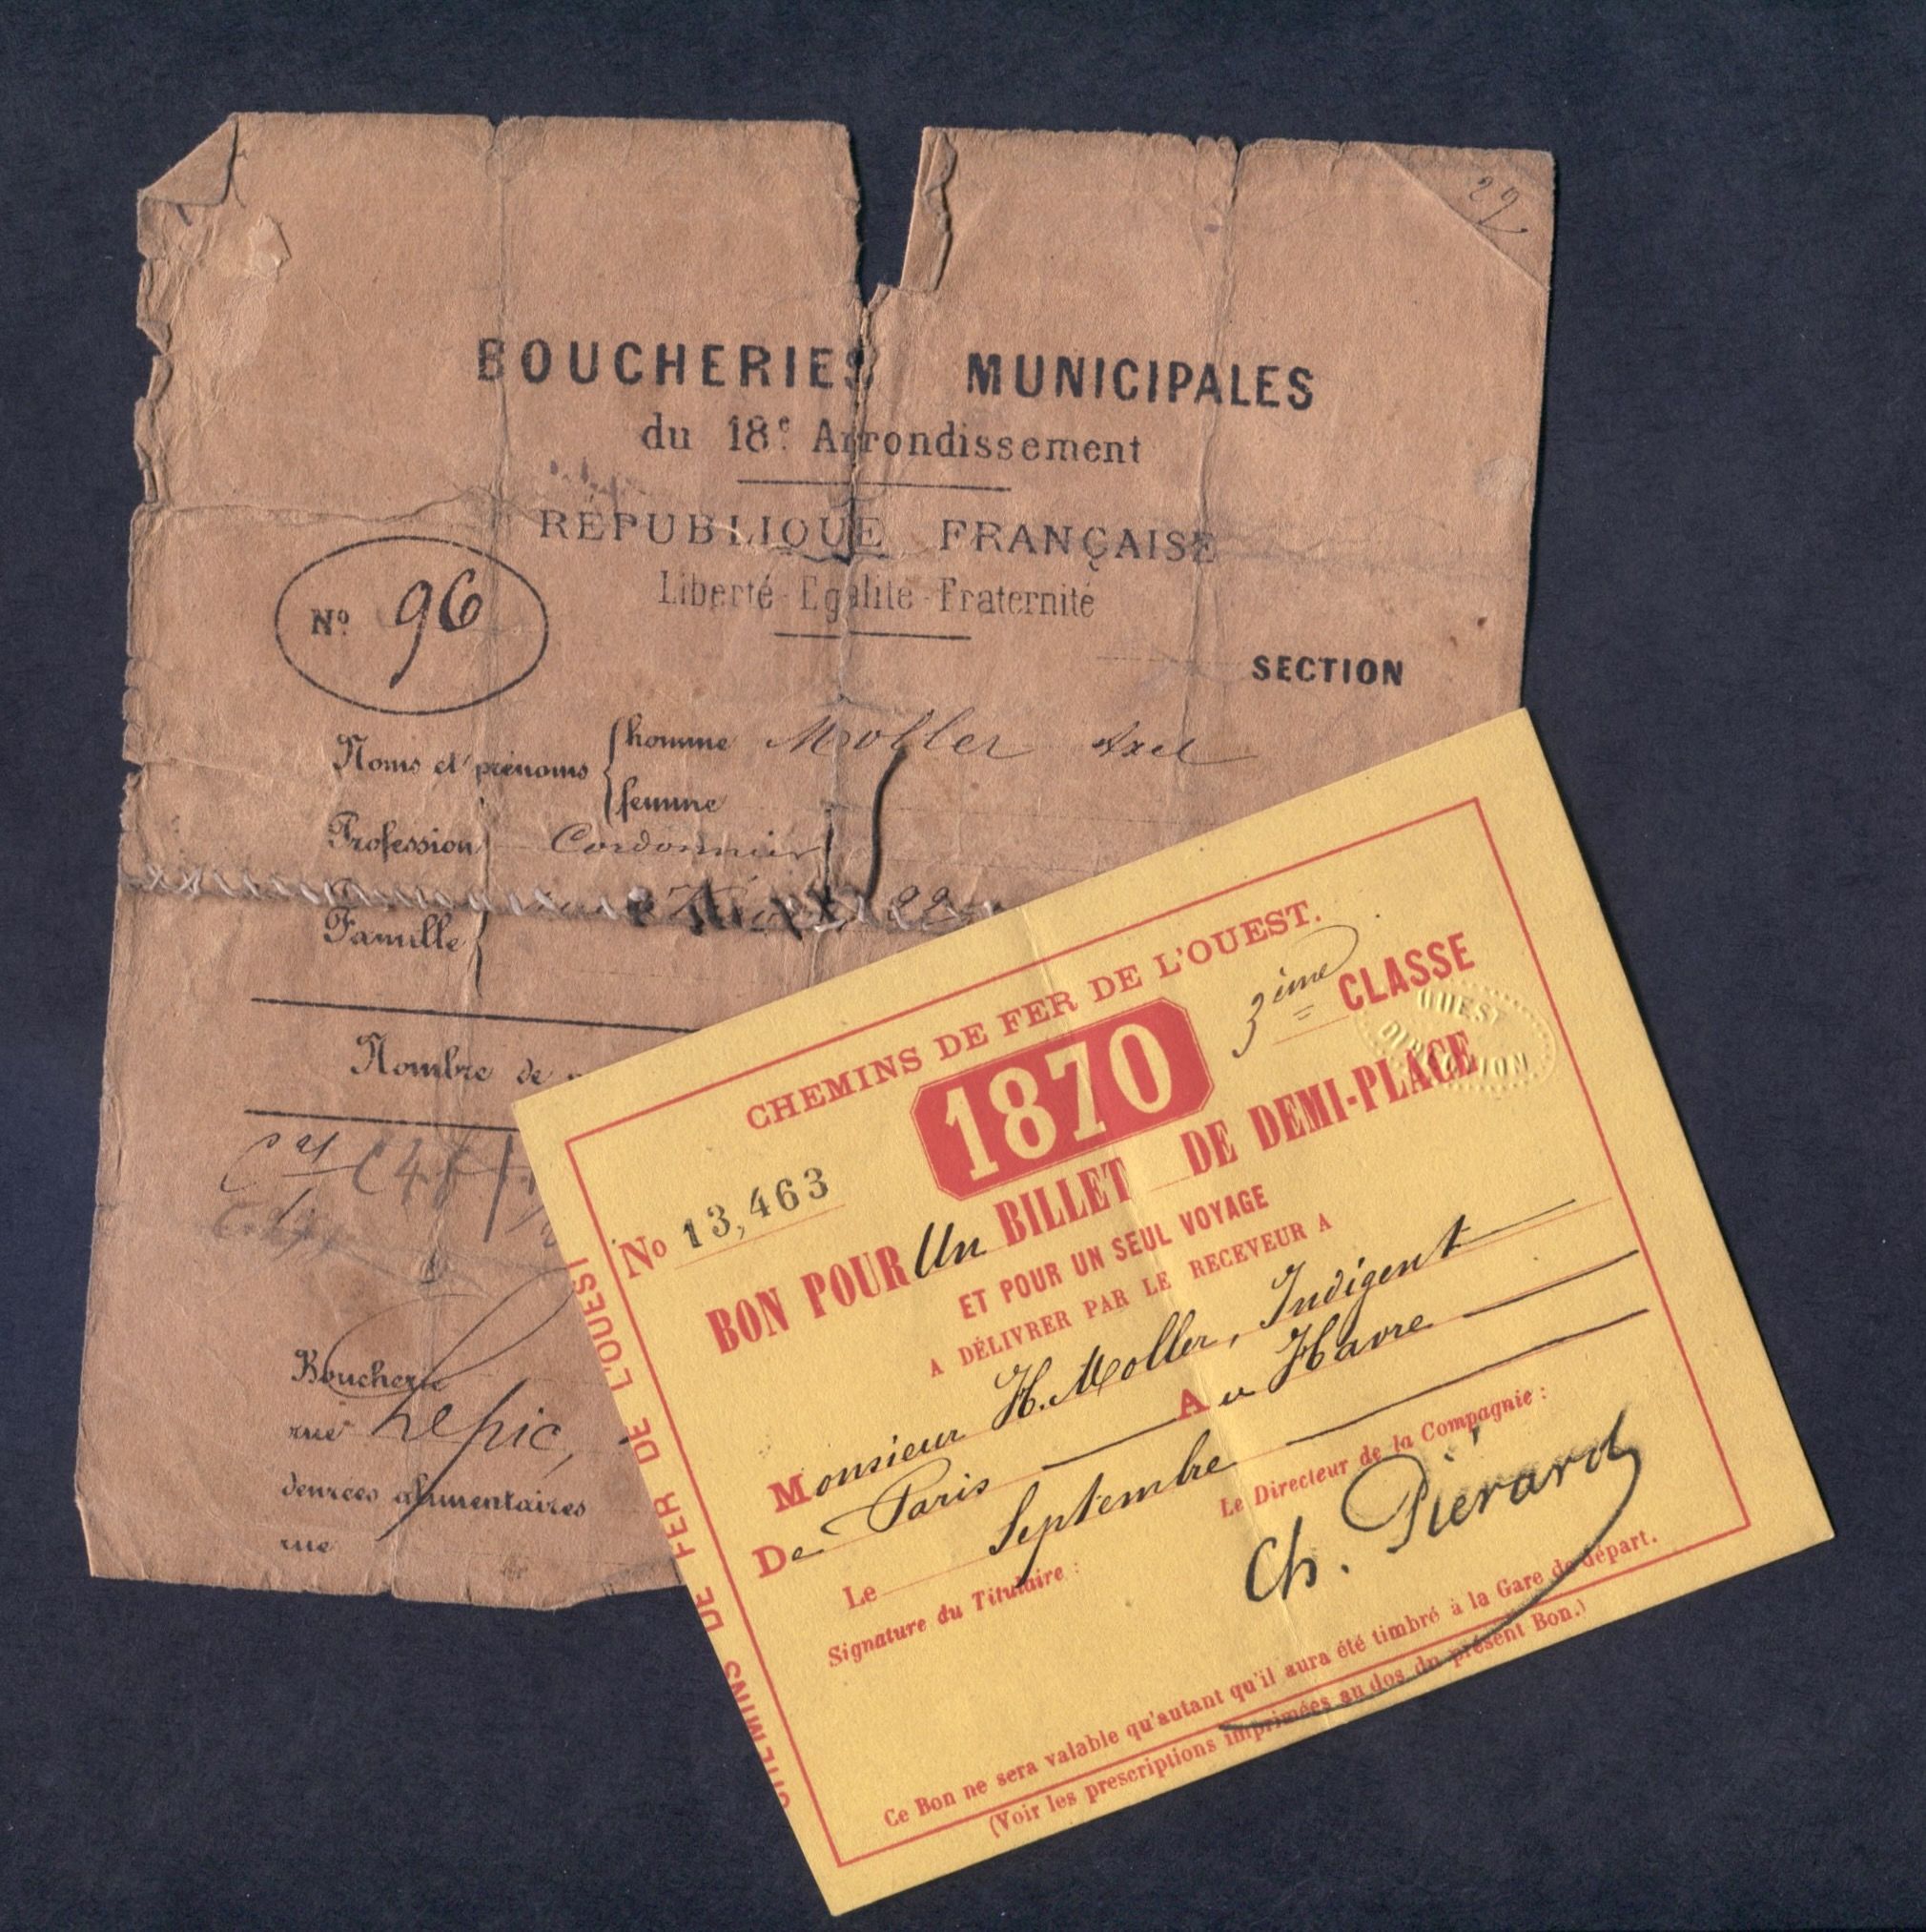 29
BOUCHERIES MUNICIPALES
du 18e Arrondissement
RÉPUBLIQUE FRANÇAISE
Liberté - Egalité - Fraternité
No 96
SECTION
Noms et prénoms { homme Moller Axel
femme
Profession Cordonnier
22
Famille
Nombre de
Boucherie
rue Lepic,
denrées alimentaires
rue
CHEMINS DE FER DE L'OUEST.
3ième CLASSE
1870
OUEST
DIRECTION
No 13,463
BON POUR Un BILLET DE DEMI-PLACE
ET POUR UN SEUL VOYAGE
A DÉLIVRER PAR LE RECEVEUR A
Monsieur H. Moller, Indigent
De Paris Au Havre
Le Septembre
Le Directeur de la Compagnie :
Signature du Titulaire :
Ch. Piérard
Ce Bon ne sera valable qu'autant qu'il aura été timbré à la Gare de départ.
(Voir les prescriptions imprimées au dos du présent Bon.)
CHEMINS DE FER DE L'OUEST